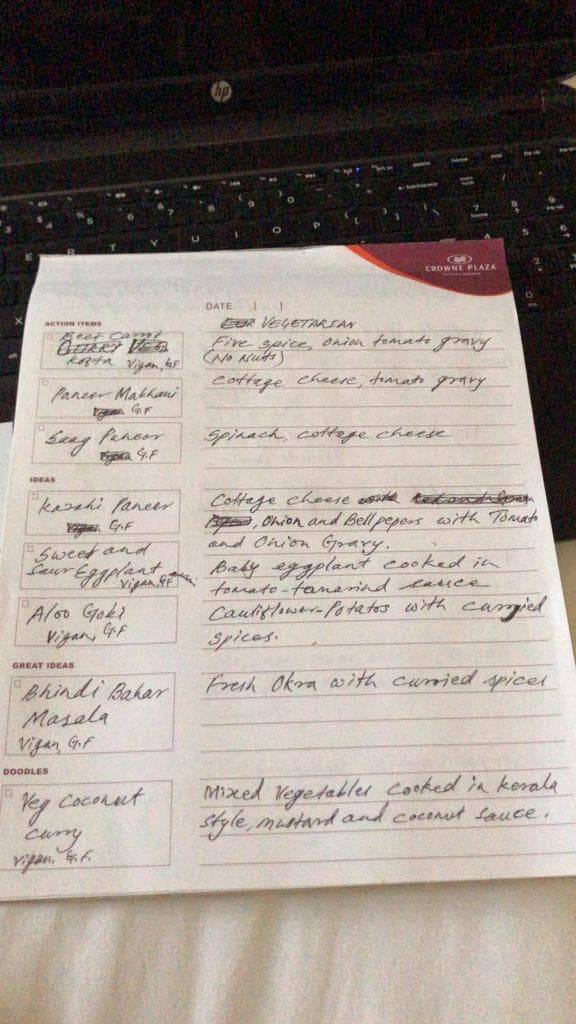 hp
E R T Y U I O P
CROWNE PLAZA
DATE
ACTION ITEMS
VEGETARIAN
Beet Carrot
Kofta Vigan, G.F
Five spice, Onion tomato gravy
(No Nuts)
Paneer Makhani
G.F
Cottage cheese, tomato gravy
Saag Paneer
G.F
Spinach, cottage cheese
IDEAS
Karahi Paneer
G.F
Cottage cheese
, Onion and Bell pepers with Tomato
and Onion Gravy.
Sweet and
Sour Eggplant
Vigan, G.F
Baby eggplant cooked in
tomato-tamarind sauce
Aloo Gobi
Vigan, G.F
Cauliflower-Potatos with curried
spices.
GREAT IDEAS
Bhindi Bahar
Masala
Vigan, G.F
Fresh Okra with curried spices
DOODLES
Veg Coconut
Curry
Vigan, G.F.
Mixed Vegetables cooked in kerala
style, mustard and coconut sauce.